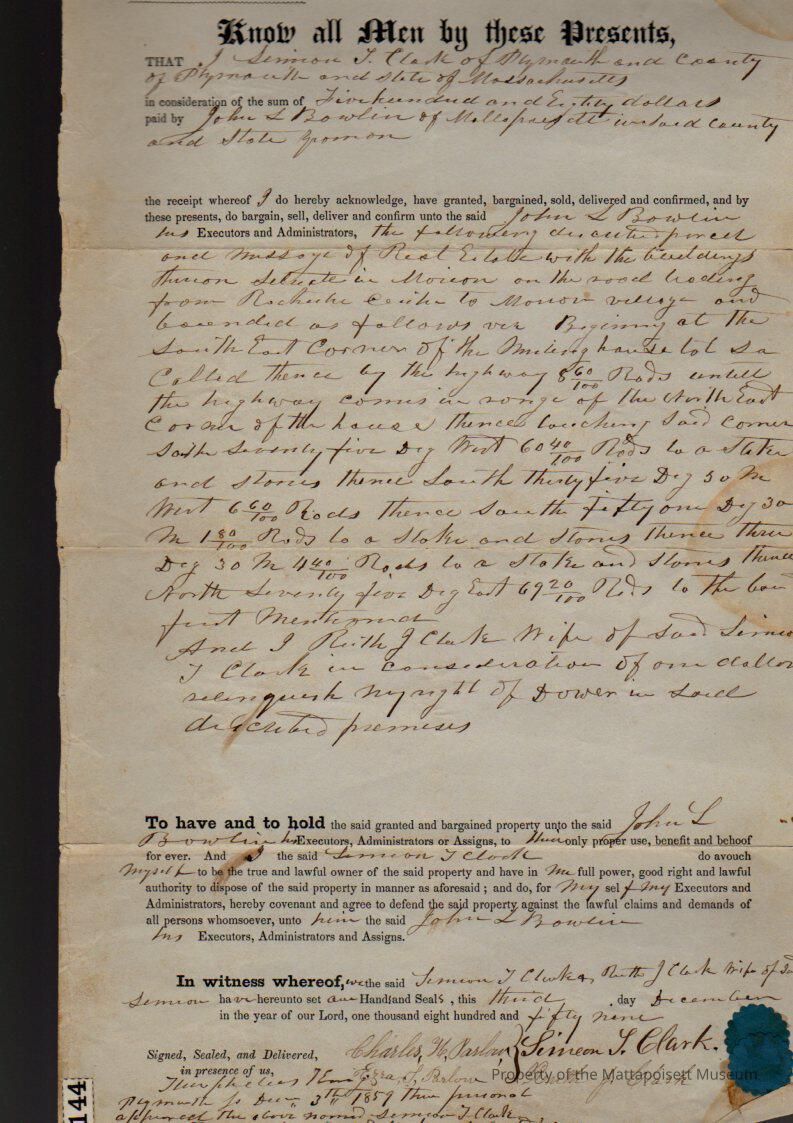 Know all Men by these Presents,
THAT I Simeon T. Clark of Plymouth and County
of Plymouth and state of Massachusetts
in consideration of the sum of Five hundred and Eighty dollars
paid by John L Bowlin of Mattapoisett in said County
and State yeoman
the receipt whereof I do hereby acknowledge, have granted, bargained, sold, delivered and confirmed, and by
these presents, do bargain, sell, deliver and confirm unto the said John L Bowlin
his Executors and Administrators, the following described parcel
and of Real Estate with the buildings
thereon situate in Marion on the road leading
from Rochester Center to Marion village and
bounded as follows viz Begining at the
South East Corner of the Meeting house lot so
Called thence by the highway 8 60/100 Rods untill
the highway comes in range of the North East
Corner of the house thence touching said corner
South Seventy five Deg West 60 40/100 Rods to a stake
and stones thence South thirty five Deg 30 M
West 6 60/100 Rods thence South fifty one Deg 30
M 1 80/100 Rods to a Stake and Stones thence three
Deg 30 M 4 40/100 Rods to a Stake and Stones thence
North Seventy five Deg East 69 20/100 Rods to the
first Mentioned
And I Ruth J Clark Wife of said Simeon
T Clark in consideration of one dollar
relinquish my right of Dower in said
described premises
To have and to hold the said granted and bargained property unto the said John L
Bowlin his Executors, Administrators or Assigns, to their only proper use, benefit and behoof
for ever. And I the said Simeon T Clark do avouch
myself to be the true and lawful owner of the said property and have in me full power, good right and lawful
authority to dispose of the said property in manner as aforesaid; and do, for my self & my Executors and
Administrators, hereby covenant and agree to defend the said property against the lawful claims and demands of
all persons whomsoever, unto him the said John L Bowlin
his Executors, Administrators and Assigns.
In witness whereof, we the said Simeon T Clark & Ruth J Clark Wife of
Simeon have hereunto set our Hands and Seals, this third day December
in the year of our Lord, one thousand eight hundred and fifty nine
Signed, Sealed, and Delivered, Charles H. Barlow Simeon T. Clark.
in presence of us, Ezra S. Barlow Ruth J. Clark
Property of the Mattapoisett Museum
Plymouth ss Dec 3th 1859 then personal
appeared the above named Simeon T Clark
144